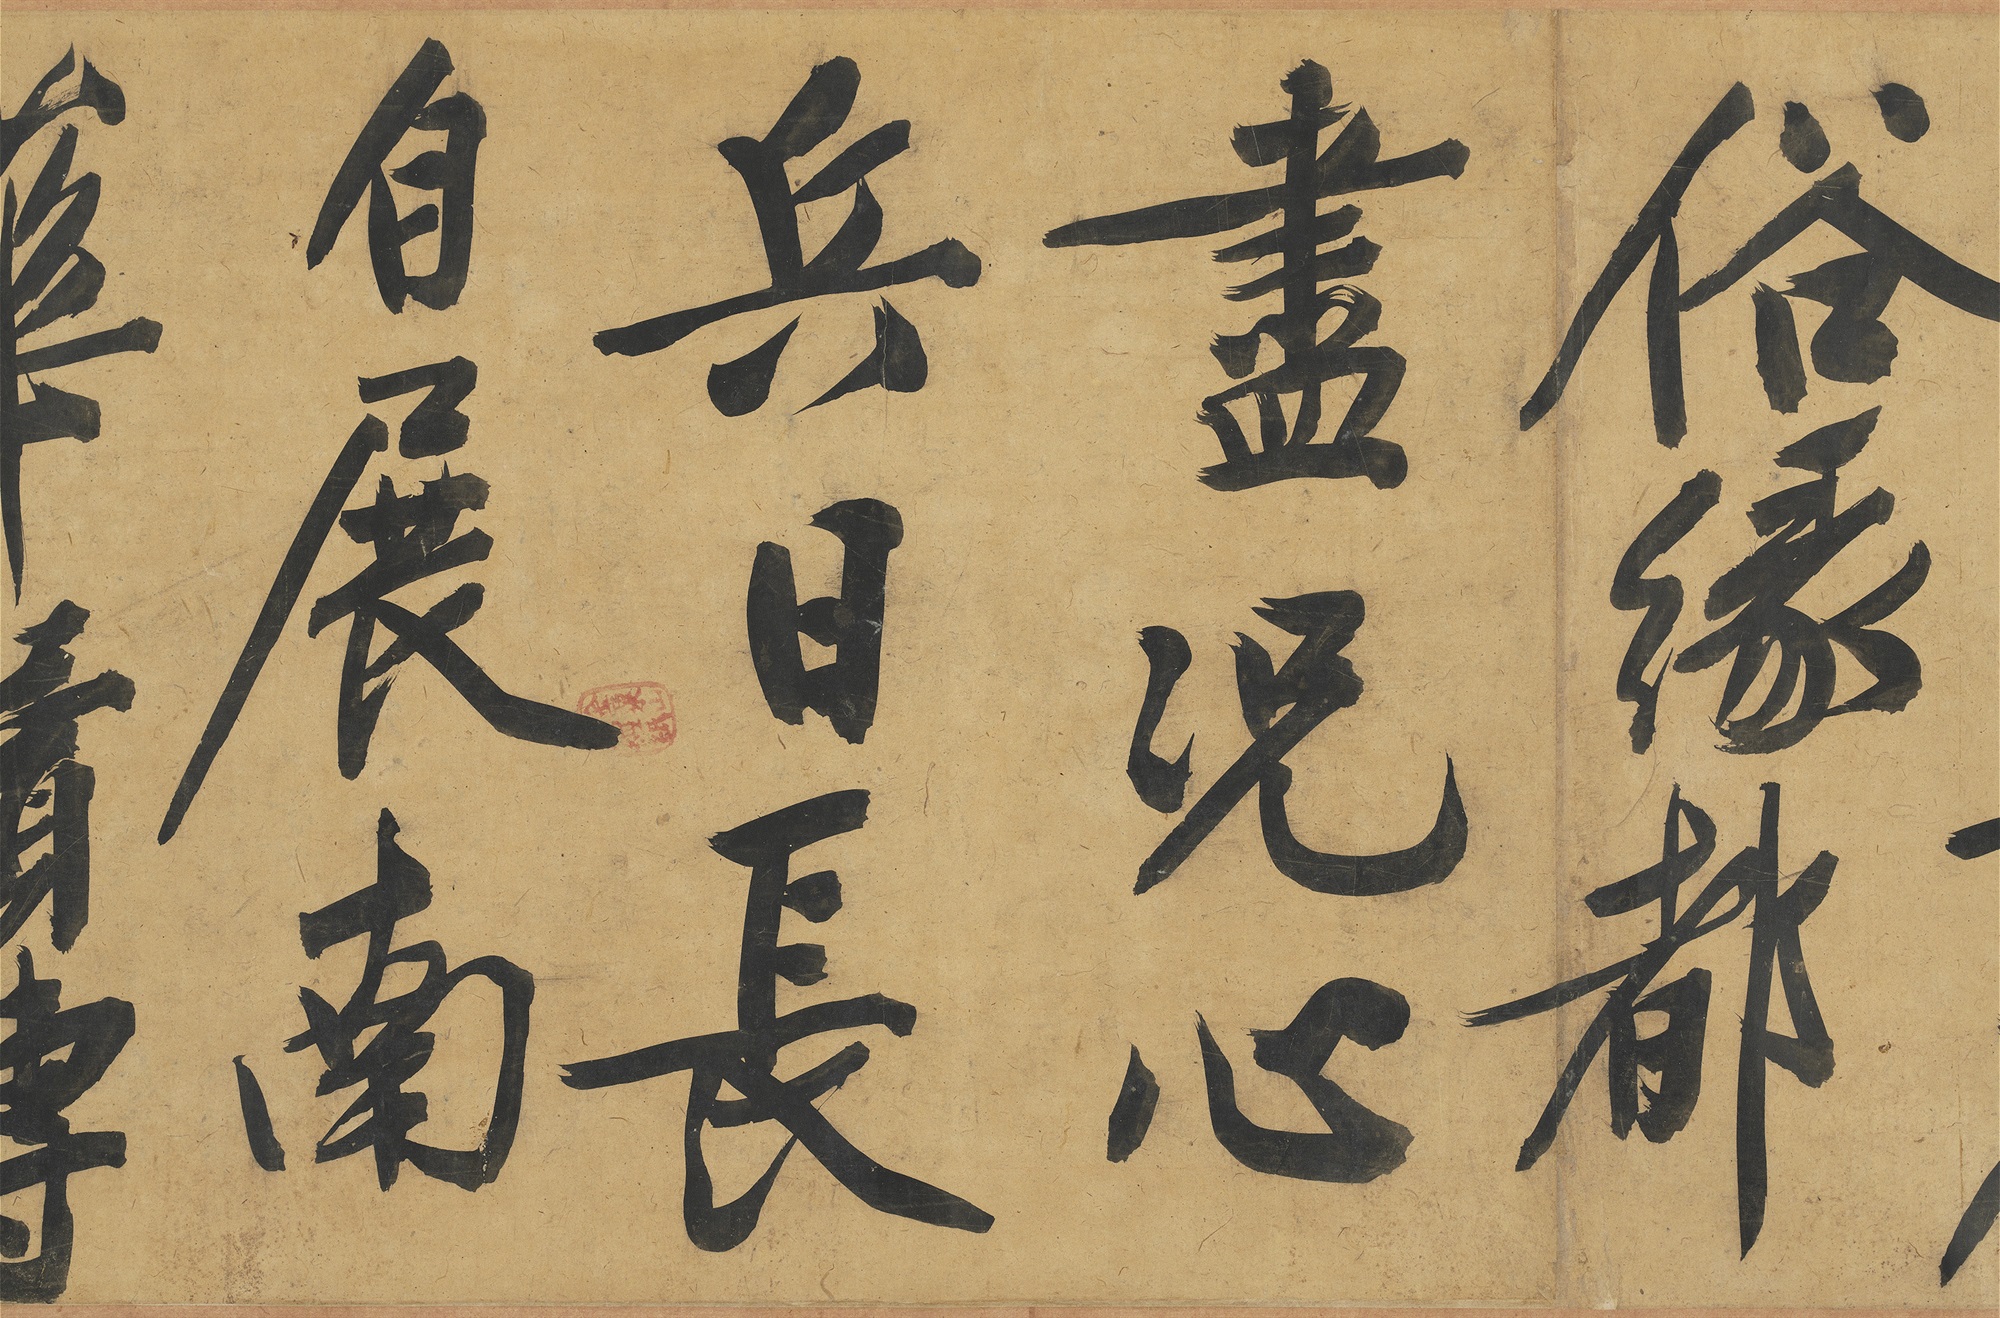 俗緣都
盡況心
兵日長
自展南
華看轉